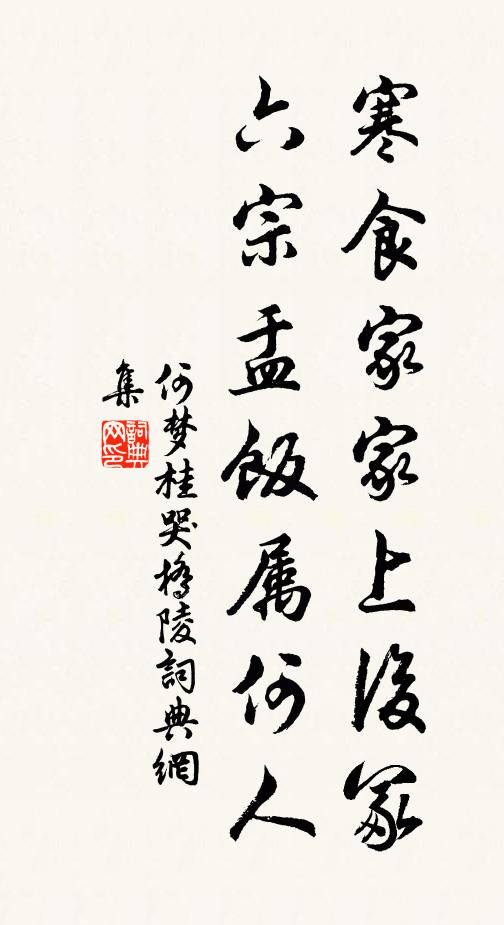 寒食家家上後冢
六宗盂飯属何人
何梦桂哭橋陵詞典網
集
詞典網印